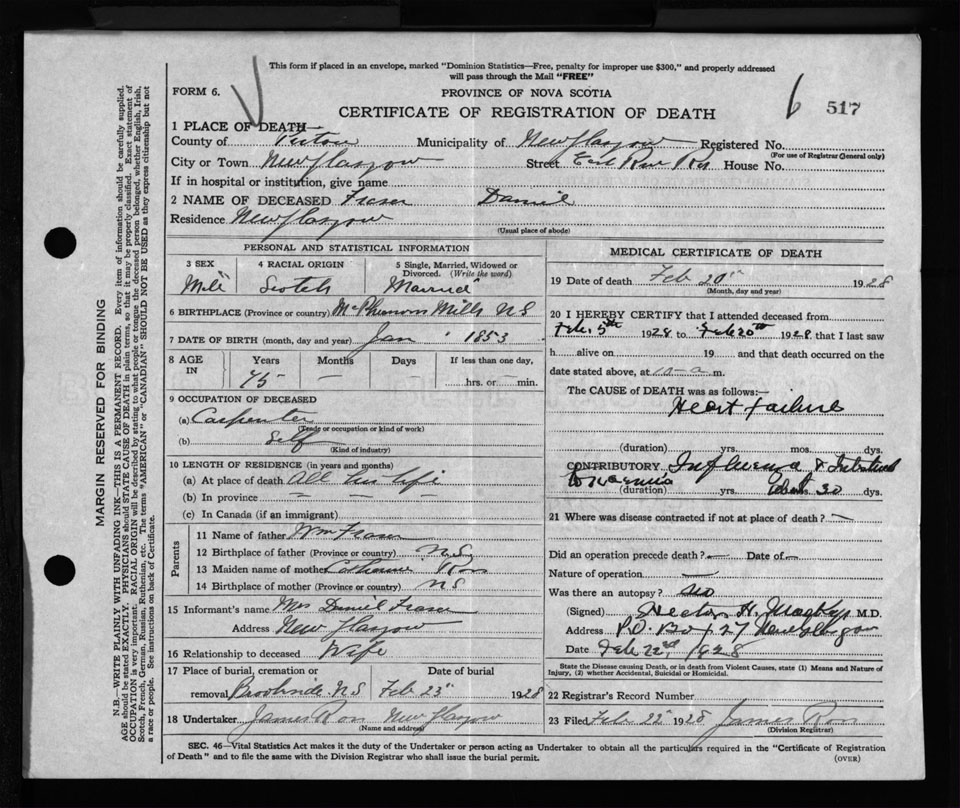 This form if placed in an envelope, marked "Dominion Statistics—Free, penalty for improper use $300," and properly addressed
will pass through the Mail "FREE"
FORM 6.
PROVINCE OF NOVA SCOTIA
6 517
CERTIFICATE OF REGISTRATION OF DEATH
1 PLACE OF DEATH—
County of Pictou Municipality of New Glasgow Registered No.
(For use of Registrar General only)
City or Town New Glasgow Street East River Rd House No.
If in hospital or institution, give name
2 NAME OF DECEASED Fraser Daniel
Residence New Glasgow
(Usual place of abode)
PERSONAL AND STATISTICAL INFORMATION
3 SEX 4 RACIAL ORIGIN 5 Single, Married, Widowed or Divorced. (Write the word)
Male Scotch Married
6 BIRTHPLACE (Province or country) McPhersons Mills N S
7 DATE OF BIRTH (month, day and year) Jan 1853
8 AGE IN Years Months Days If less than one day,
75 — — hrs. or min.
9 OCCUPATION OF DECEASED
(a) Carpenter
(Trade or occupation or kind of work)
(b) Self
(Kind of industry)
10 LENGTH OF RESIDENCE (in years and months)
(a) At place of death All his life
(b) In province — —
(c) In Canada (if an immigrant)
Parents
11 Name of father Wm Fraser
12 Birthplace of father (Province or country) N S
13 Maiden name of mother Catherine Ross
14 Birthplace of mother (Province or country) N S
15 Informant's name Mrs Daniel Fraser
Address New Glasgow
16 Relationship to deceased Wife
17 Place of burial, cremation or Date of burial
removal Brookside N S Feb 23" 1928
18 Undertaker James Ross New Glasgow
(Name and address)
MEDICAL CERTIFICATE OF DEATH
19 Date of death Feb 20" 1928
(Month, day and year)
20 I HEREBY CERTIFY that I attended deceased from
Feb. 5th 1928 to Feb 20th 1928 that I last saw
h alive on 19 and that death occurred on
the date stated above, at 10 a m.
The CAUSE OF DEATH was as follows:—
Heart failure
(duration) yrs. mos. dys.
CONTRIBUTORY Influenza & Intestinal
Toxaemia
(duration) yrs. 30 dys.
21 Where was disease contracted if not at place of death? —
Did an operation precede death? — Date of —
Nature of operation —
Was there an autopsy? No
(Signed) Hector H. M.D.
Address P.O. Box 27 New Glasgow
Date Feb 22nd, 1928
State the Disease causing Death, or in death from Violent Causes, state (1) Means and Nature of
Injury, (2) whether Accidental, Suicidal or Homicidal.
22 Registrar's Record Number
23 Filed Feb 22" 1928 James Ross
(Division Registrar)
SEC. 46—Vital Statistics Act makes it the duty of the Undertaker or person acting as Undertaker to obtain all the particulars required in the "Certificate of Registration
of Death" and to file the same with the Division Registrar who shall issue the burial permit.
(OVER)
MARGIN RESERVED FOR BINDING
N.B.—WRITE PLAINLY WITH UNFADING INK—THIS IS A PERMANENT RECORD. Every item of information should be carefully supplied.
AGE should be stated EXACTLY. PHYSICIANS should STATE CAUSE OF DEATH in plain terms, so that it may be properly classified. Exact statement of
OCCUPATION is very important. RACIAL ORIGIN will be described by stating to what people or tongue the deceased person belonged, whether English, Irish,
Scotch, French, German, Russian, Ruthenian, etc. The terms "AMERICAN" or "CANADIAN" SHOULD NOT BE USED as they express citizenship but not
a race or people. See instructions on back of Certificate.